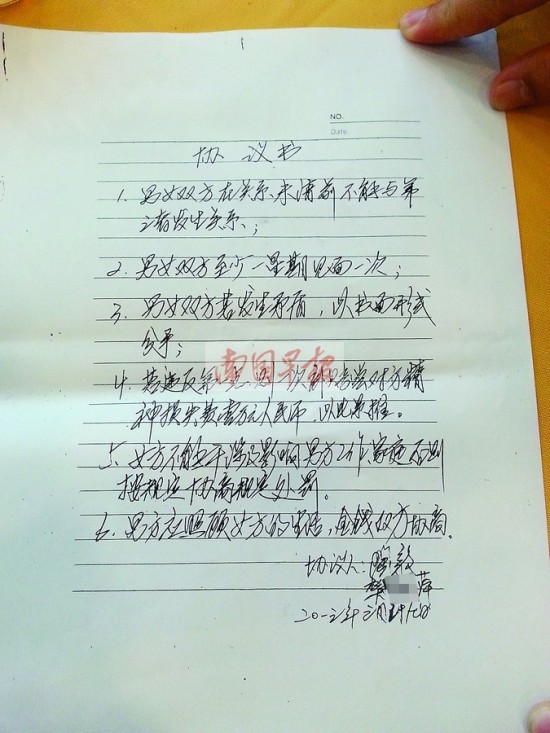 NO.
Date
协议书
1. 男女双方在关系未清前不能与第
三者发生关系;
2. 男女双方至少一星期见面一次;
3. 男女双方若发生矛盾，以书面形式
分手;
南国早报
4. 若违反第 一次 赔偿对方精
神损失费壹万元人民币，以此类推。
5. 女方不能干涉及影响男方工作家庭否则
按规定协商规定处罚。
6. 男方应照顾女方的生活，金钱双方协商。
协议人:
萍
二0一三年